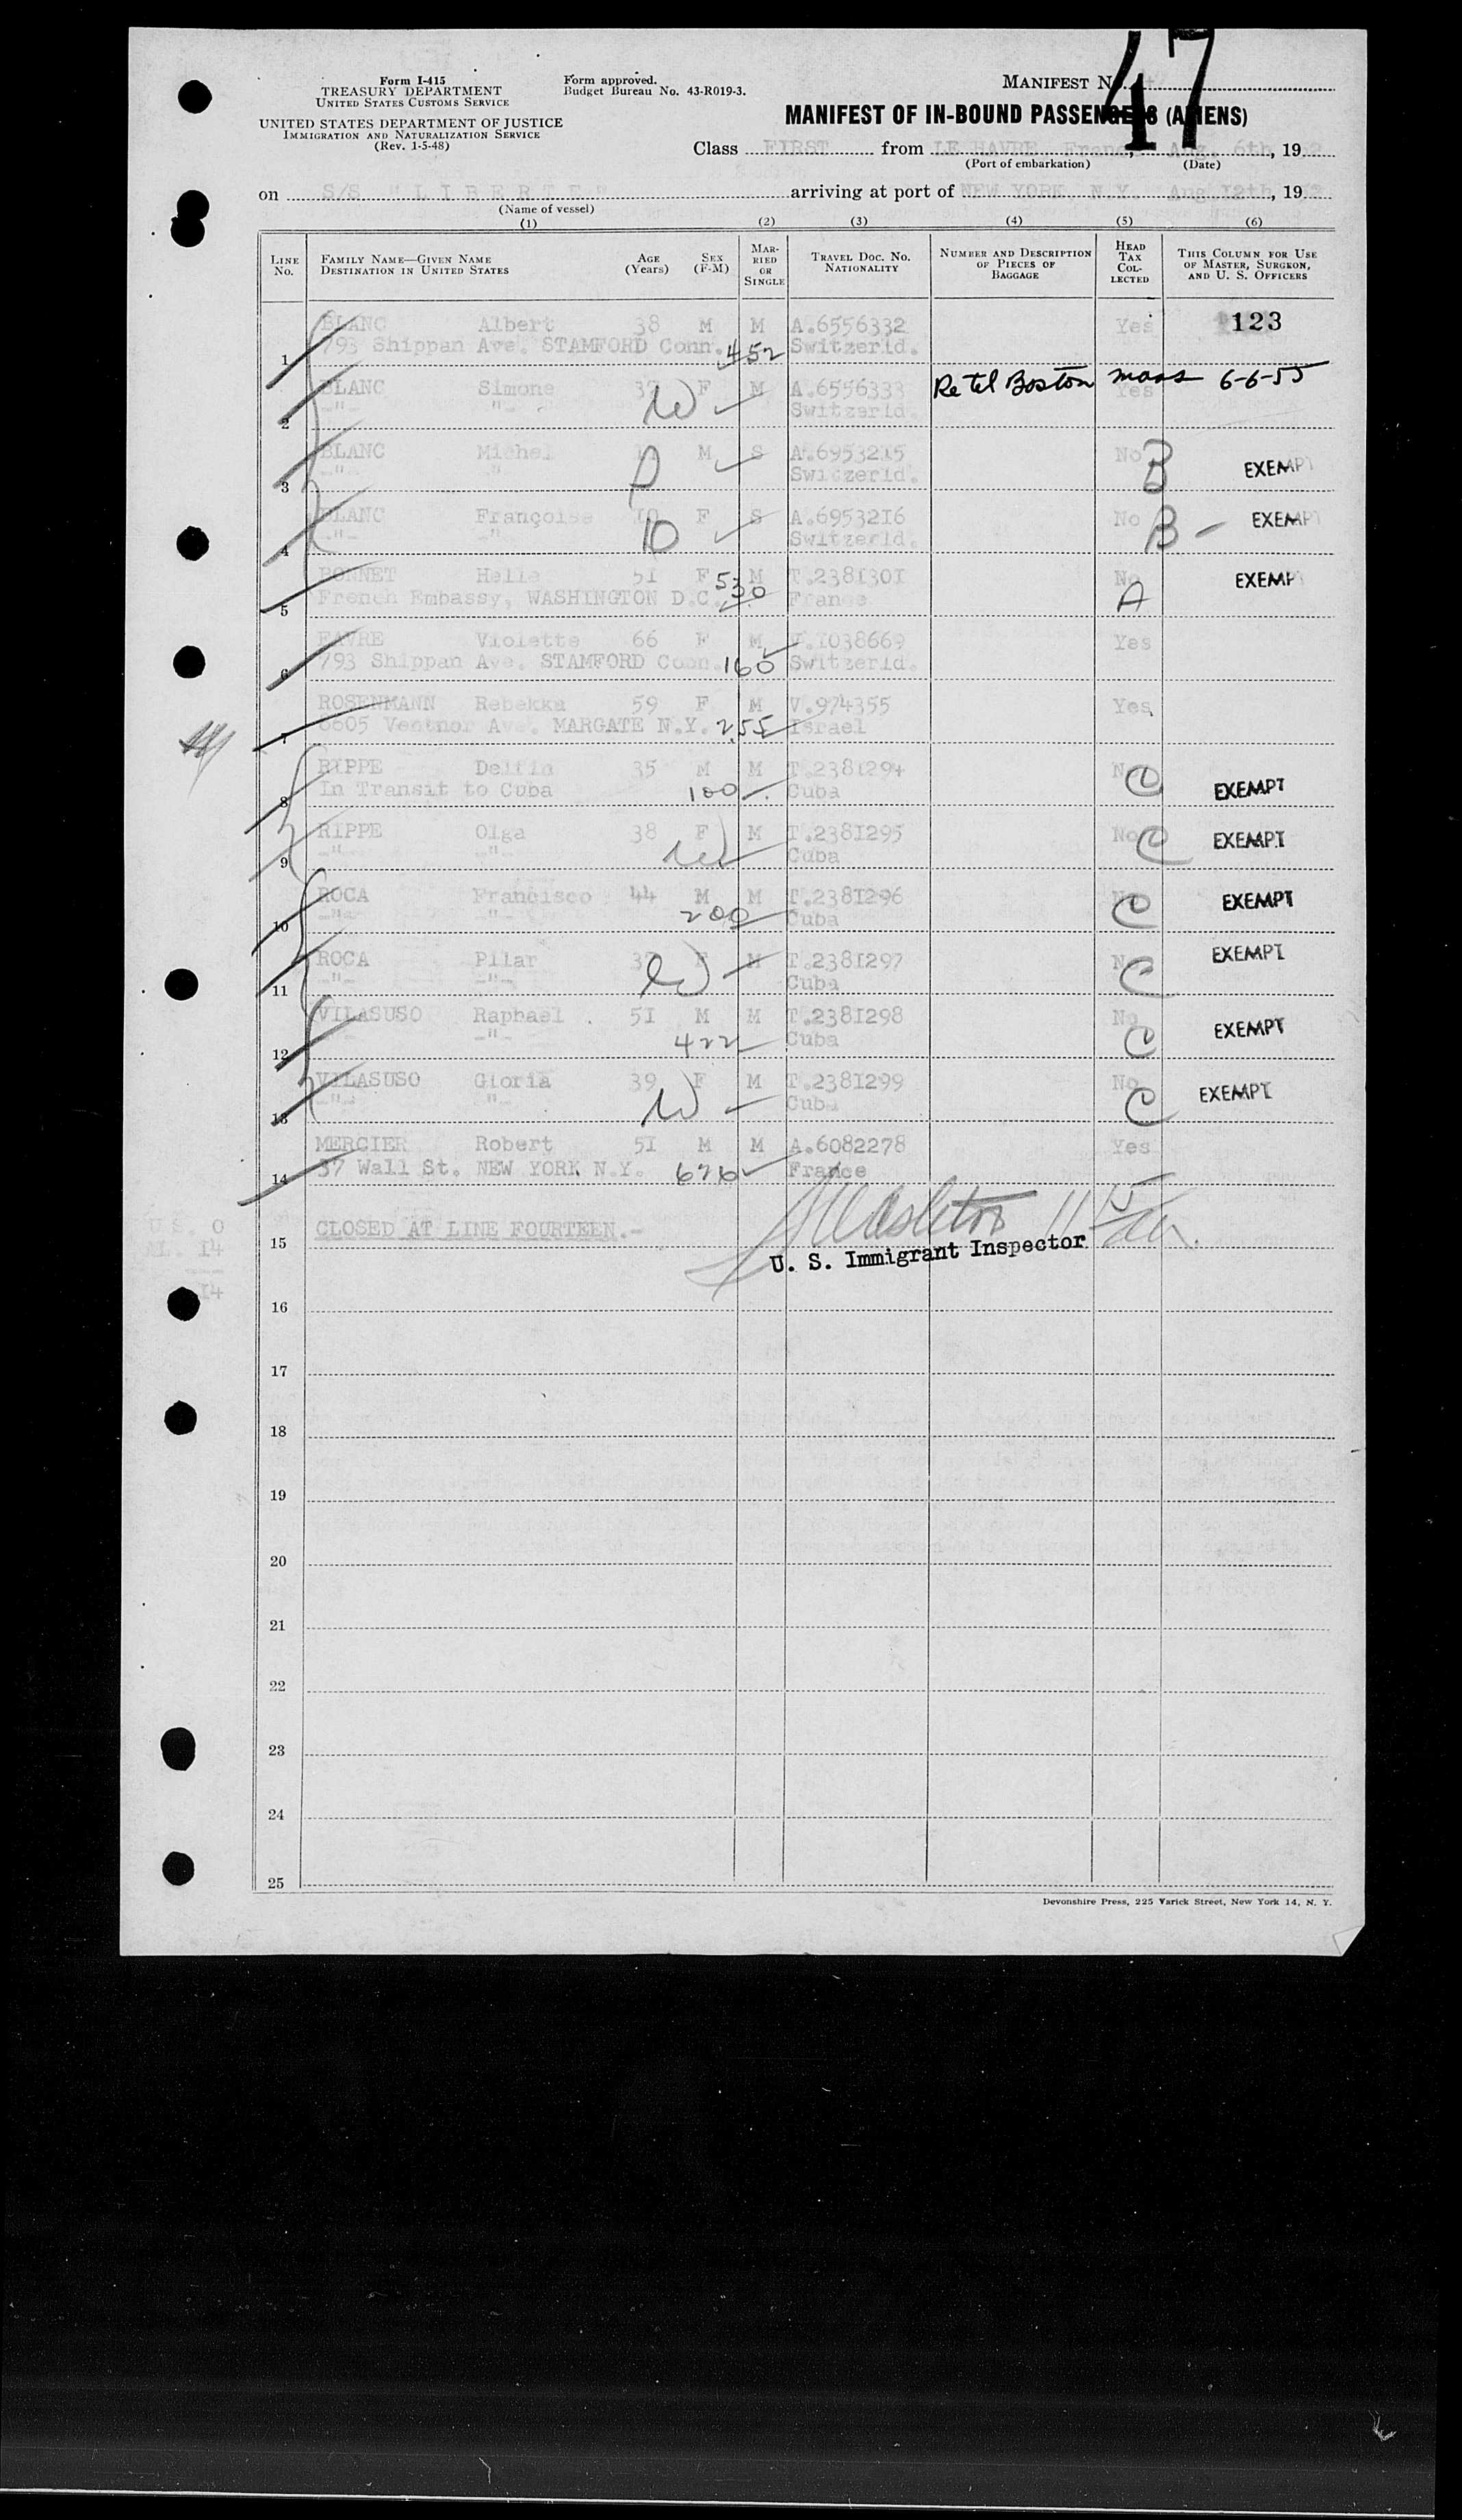 47
Form I-415
TREASURY DEPARTMENT
UNITED STATES CUSTOMS SERVICE
UNITED STATES DEPARTMENT OF JUSTICE
IMMIGRATION AND NATURALIZATION SERVICE
(Rev. 1-5-48)
Form approved.
Budget Bureau No. 43-R019-3.
MANIFEST No.
MANIFEST OF IN-BOUND PASSENGERS (ALIENS)
Class FIRST from LE HAVRE, France, Aug. 6th, 19
(Port of embarkation) (Date)
on S/S "LIBERTE" arriving at port of NEW YORK, N.Y. Aug. 12th, 19
(Name of vessel)
(1) (2) (3) (4) (5) (6)
LINE No. FAMILY NAME—GIVEN NAME DESTINATION IN UNITED STATES AGE (Years) SEX (F-M) MARRIED OR SINGLE TRAVEL DOC. NO. NATIONALITY NUMBER AND DESCRIPTION OF PIECES OF BAGGAGE HEAD TAX COLLECTED THIS COLUMN FOR USE OF MASTER, SURGEON, AND U. S. OFFICERS
BLANC Albert 38 M M A.6556332 Yes 123
1 793 Shippan Ave. STAMFORD Conn. 452 Switzerld.
BLANC Simone F M A.6556333 Re tel Boston mass Yes 6-6-55
2 -"- "- W Switzerld.
BLANC Michel M S A.6953215 No B EXEMPT
3 -"- " Switzerld.
BLANC Françoise 10 F S A.6953216 No B - EXEMPT
4 -"- -" D Switzerld.
BONNET Helle 51 F M T.2381301 No EXEMPT
5 French Embassy, WASHINGTON D.C. 530 France A
FAVRE Violette 66 F M V.1038669 Yes
6 793 Shippan Ave. STAMFORD Conn. 160 Switzerld.
ROSENMANN Rebekka 59 F M V.974355 Yes
7 6605 Ventnor Ave. MARGATE N.Y. 255 Israel
RIPPE Delfin 35 M M T.2381294 No C
8 In Transit to Cuba 100 Cuba EXEMPT
RIPPE Olga 38 F M T.2381295 No C EXEMPT
9 -"- -"- W Cuba
ROCA Francisco 44 M M T.2381296 No C EXEMPT
10 -"- -"- 200 Cuba
ROCA Pilar 37 F M T.2381297 No C EXEMPT
11 -"- -"- W Cuba
VILASUSO Raphael 51 M M T.2381298 No EXEMPT
12 -"- 422 Cuba C
VILASUSO Gloria 39 F M T.2381299 No EXEMPT
13 -"- -"- W Cuba C
MERCIER Robert 51 M M A.6082278 Yes
14 37 Wall St. NEW YORK N.Y. 626 France
U.S. 0
AL. 14
15 CLOSED AT LINE FOURTEEN.-
U. S. Immigrant Inspector
14
16
17
18
19
20
21
22
23
24
25
Devonshire Press, 225 Varick Street, New York 14, N. Y.